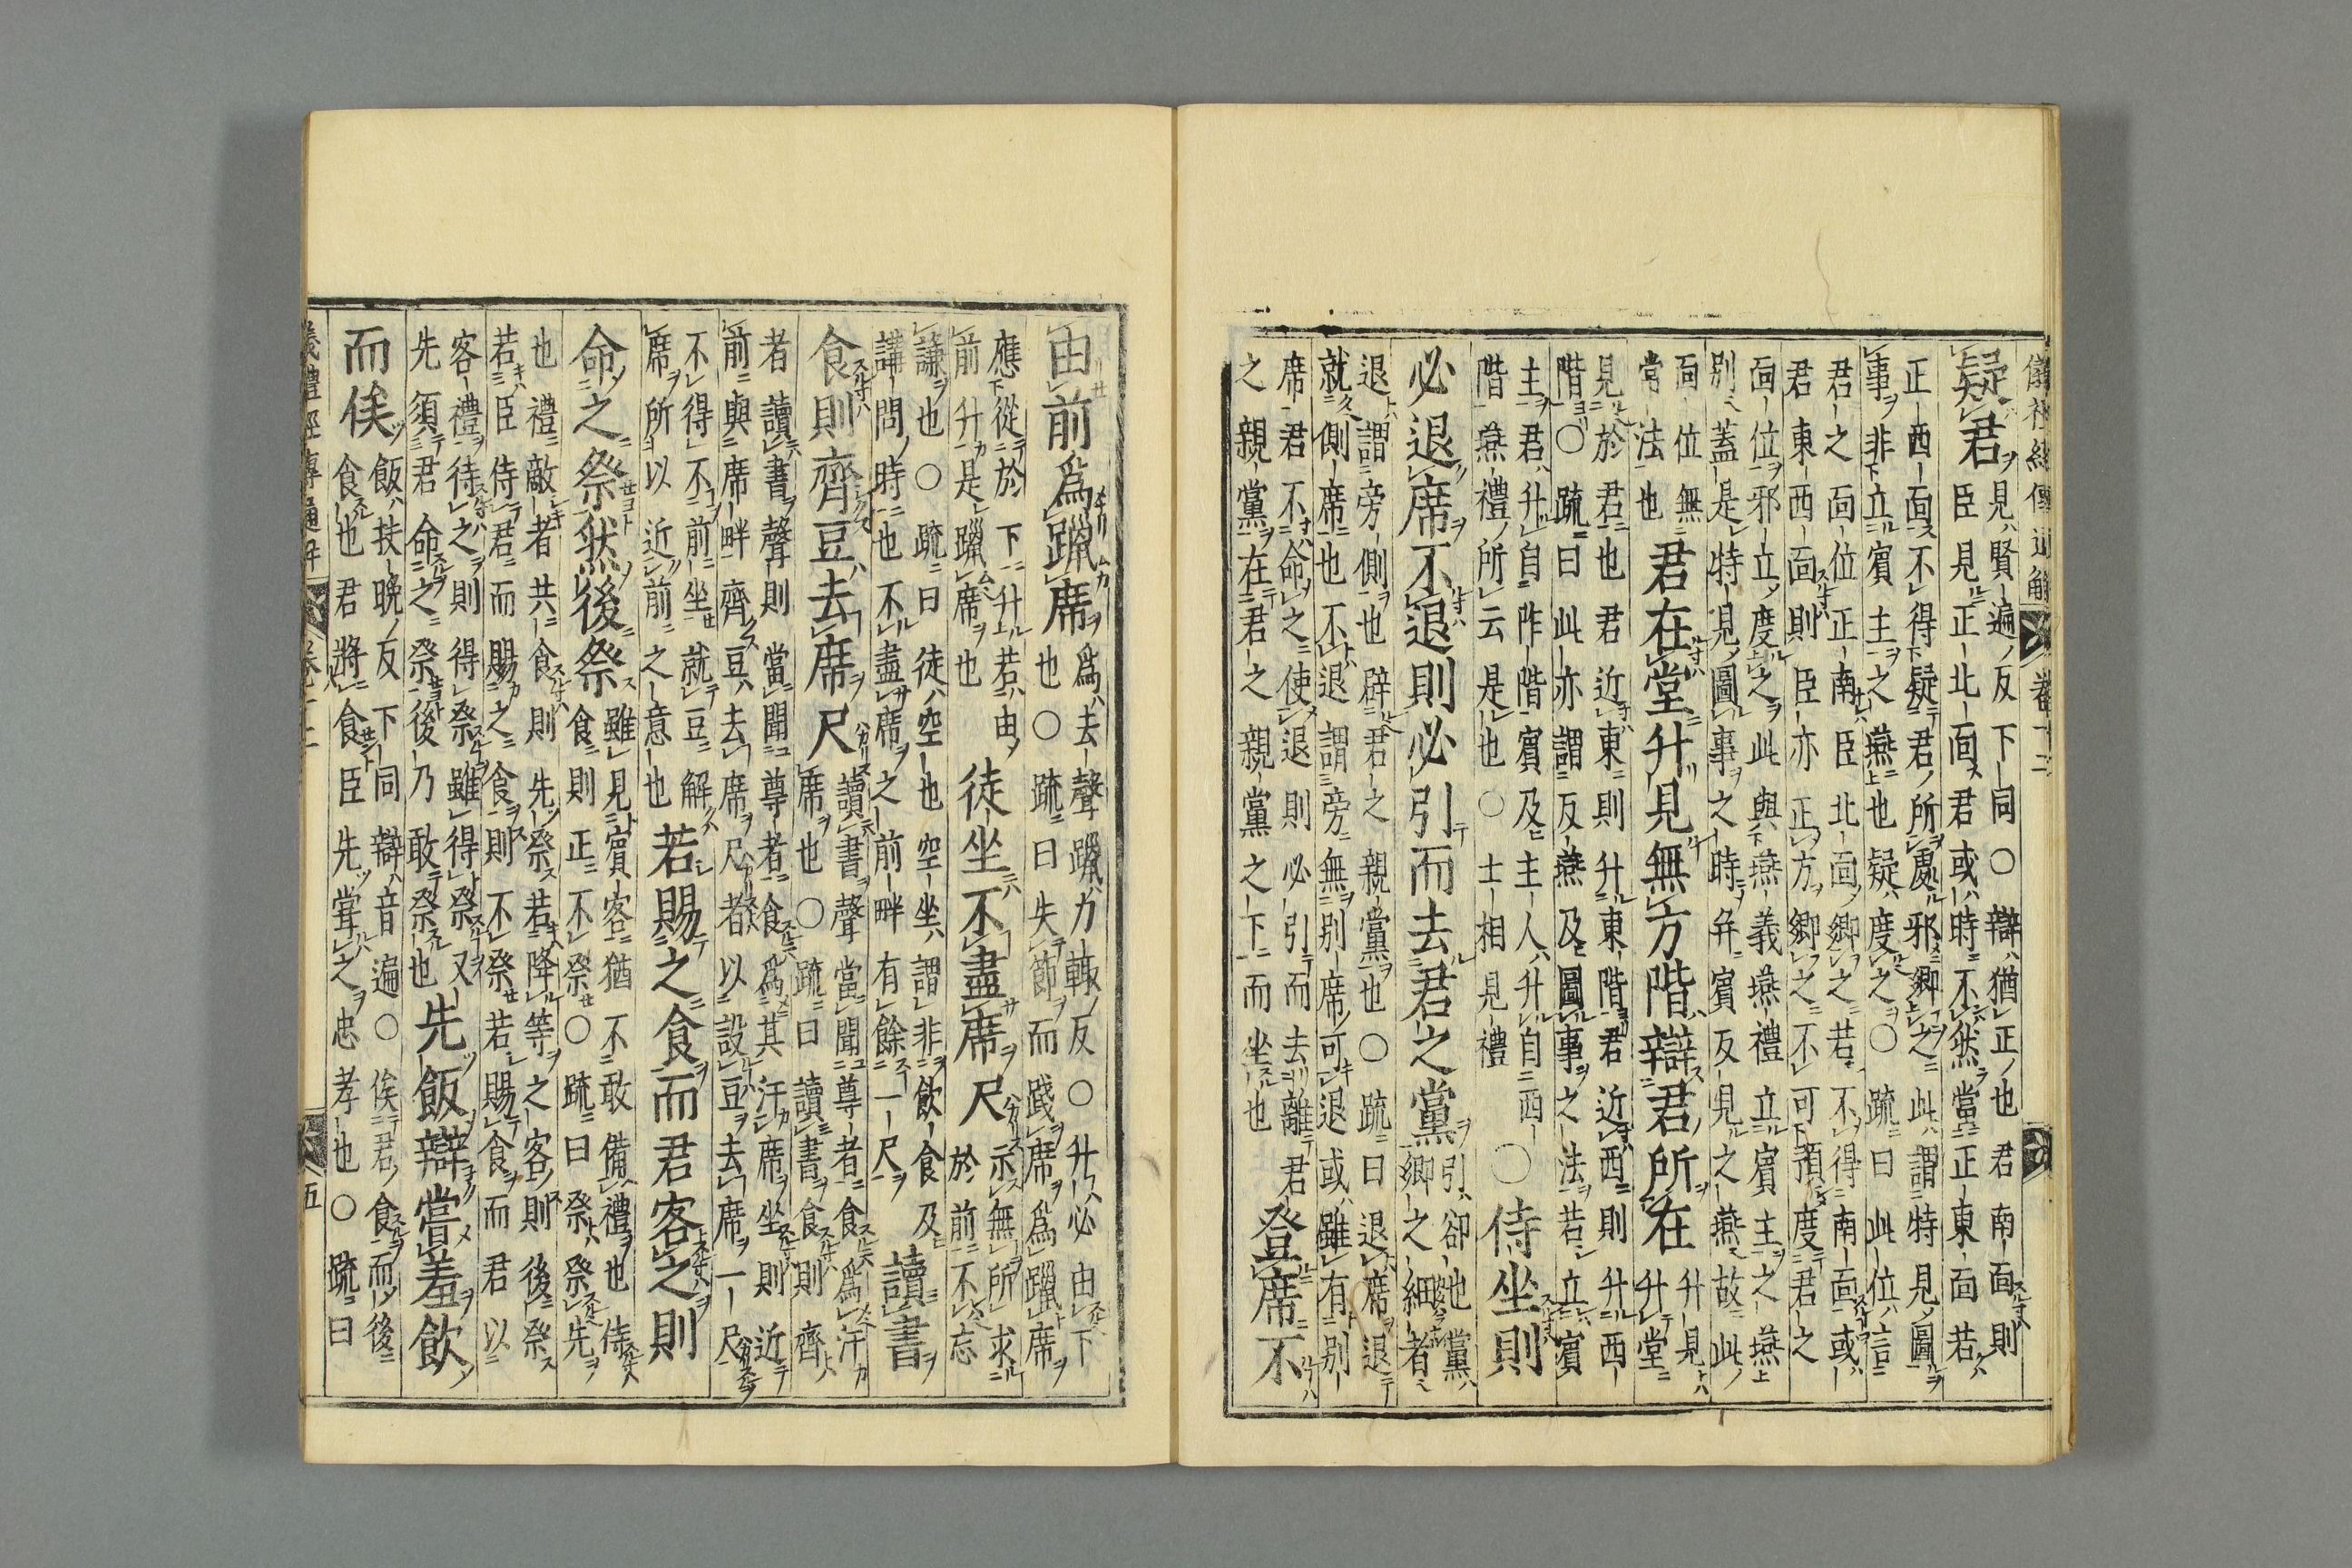 儀禮經傳通解 卷十二
疑君
見賢遍反下同○辯猶正也君南面則
臣見正北面君或時不然當正東面若
正西面不得疑君所處邪鄉之此謂特見圖
事非立賓主之燕也疑度之○疏曰此位言
君之面位正南臣北面鄉之若不得南面或
君東西面則臣亦正方鄉之不可預度君之
面位邪立度之此與燕義燕禮立賓主之燕
別蓋是特見圖事之時弁賓反見之燕故此
面位無
常法也
君在堂升見無方階辯君所在
升見
升堂
見於君也君近東則升東階君近西則升西
階○疏曰此亦謂反燕及圖事之法若立賓
主君升自阼階賓及主人升自西
階燕禮所云是也○士相見禮
○侍坐則
必退席不退則必引而去君之黨
引卻也黨
鄉之細者
退謂旁側也辟君之親黨也○疏曰退席退
就側席也不退謂旁無別席可退或雖有別
席君不命之使退則必引而去離君
之親黨在君之親黨之下而坐也
登席不
由前爲躐席
爲去聲躐力輒反○升必由下
也○疏曰失節而踐席爲躐席
應從於下升若由
前升是躐席也
徒坐不盡席尺
示無所求
於前不忘
謙也○疏曰徒空也空坐謂非飲食及
講問時也不盡席之前畔有餘一尺
讀書
食則齊豆去席尺
讀書聲當聞尊者食爲汙
席也○疏曰讀書食則齊
者讀書聲則當聞尊者食爲其汙席坐則近
前與席畔齊豆去席尺者以設豆去席一尺
不得不前坐就豆解
席所以近前之意也
若賜之食而君客之則
命之祭然後祭
雖見賓客猶不敢備禮也侍
食則正不祭○疏曰祭祭先
也禮敵者共食則先祭若降等之客則後祭
若臣侍君而賜之食則不祭若賜食而君以
客禮待之則得祭雖得祭又
先須君命之祭後乃敢祭也
先飯辯嘗羞飲
而俟
飯扶晚反下同辯音遍○俟君食而後
食也君將食臣先嘗之忠孝也○疏曰
儀禮經傳通解 卷十二 五